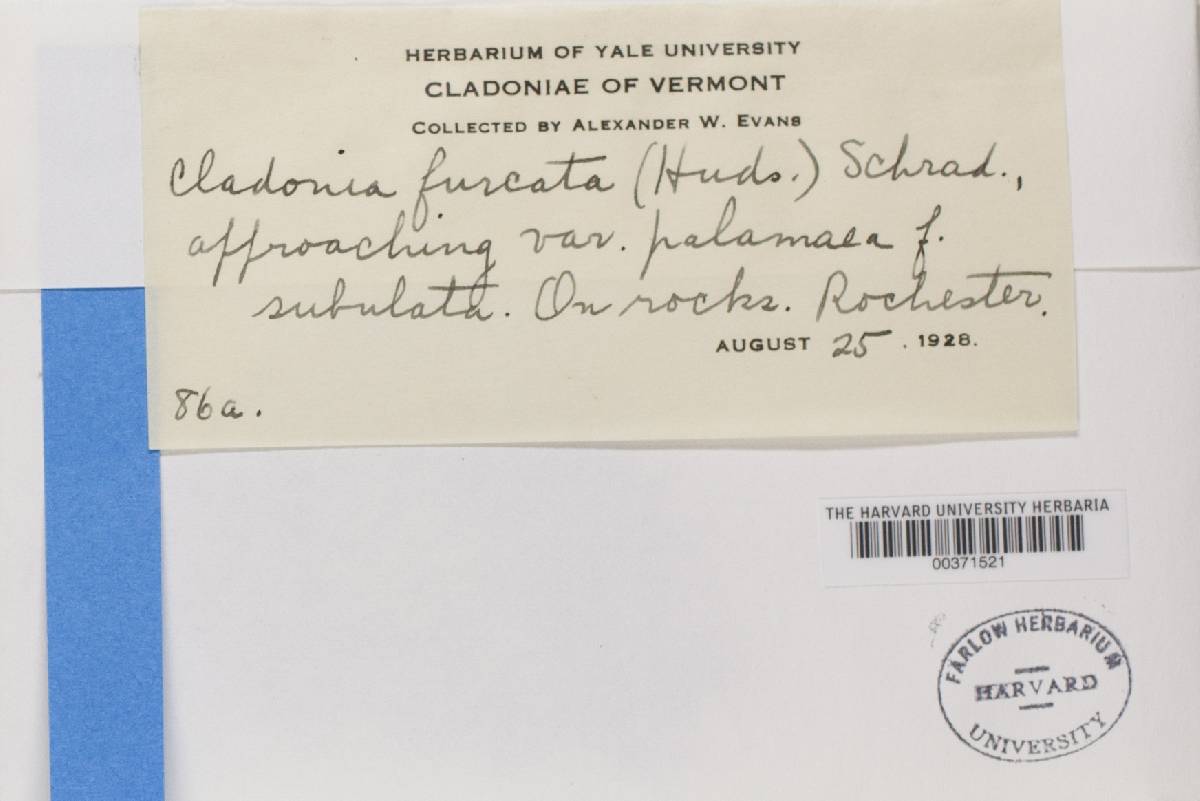 HERBARIUM OF YALE UNIVERSITY
CLADONIAE OF VERMONT
COLLECTED BY ALEXANDER W. EVANS
Cladonia furcata (Huds.) Schrad.,
approaching var. palamaea f.
subulata. On rocks. Rochester.
AUGUST 25. 1928.
86a.
THE HARVARD UNIVERSITY HERBARIA
00371521
FARLOW HERBARIUM
HARVARD
UNIVERSITY